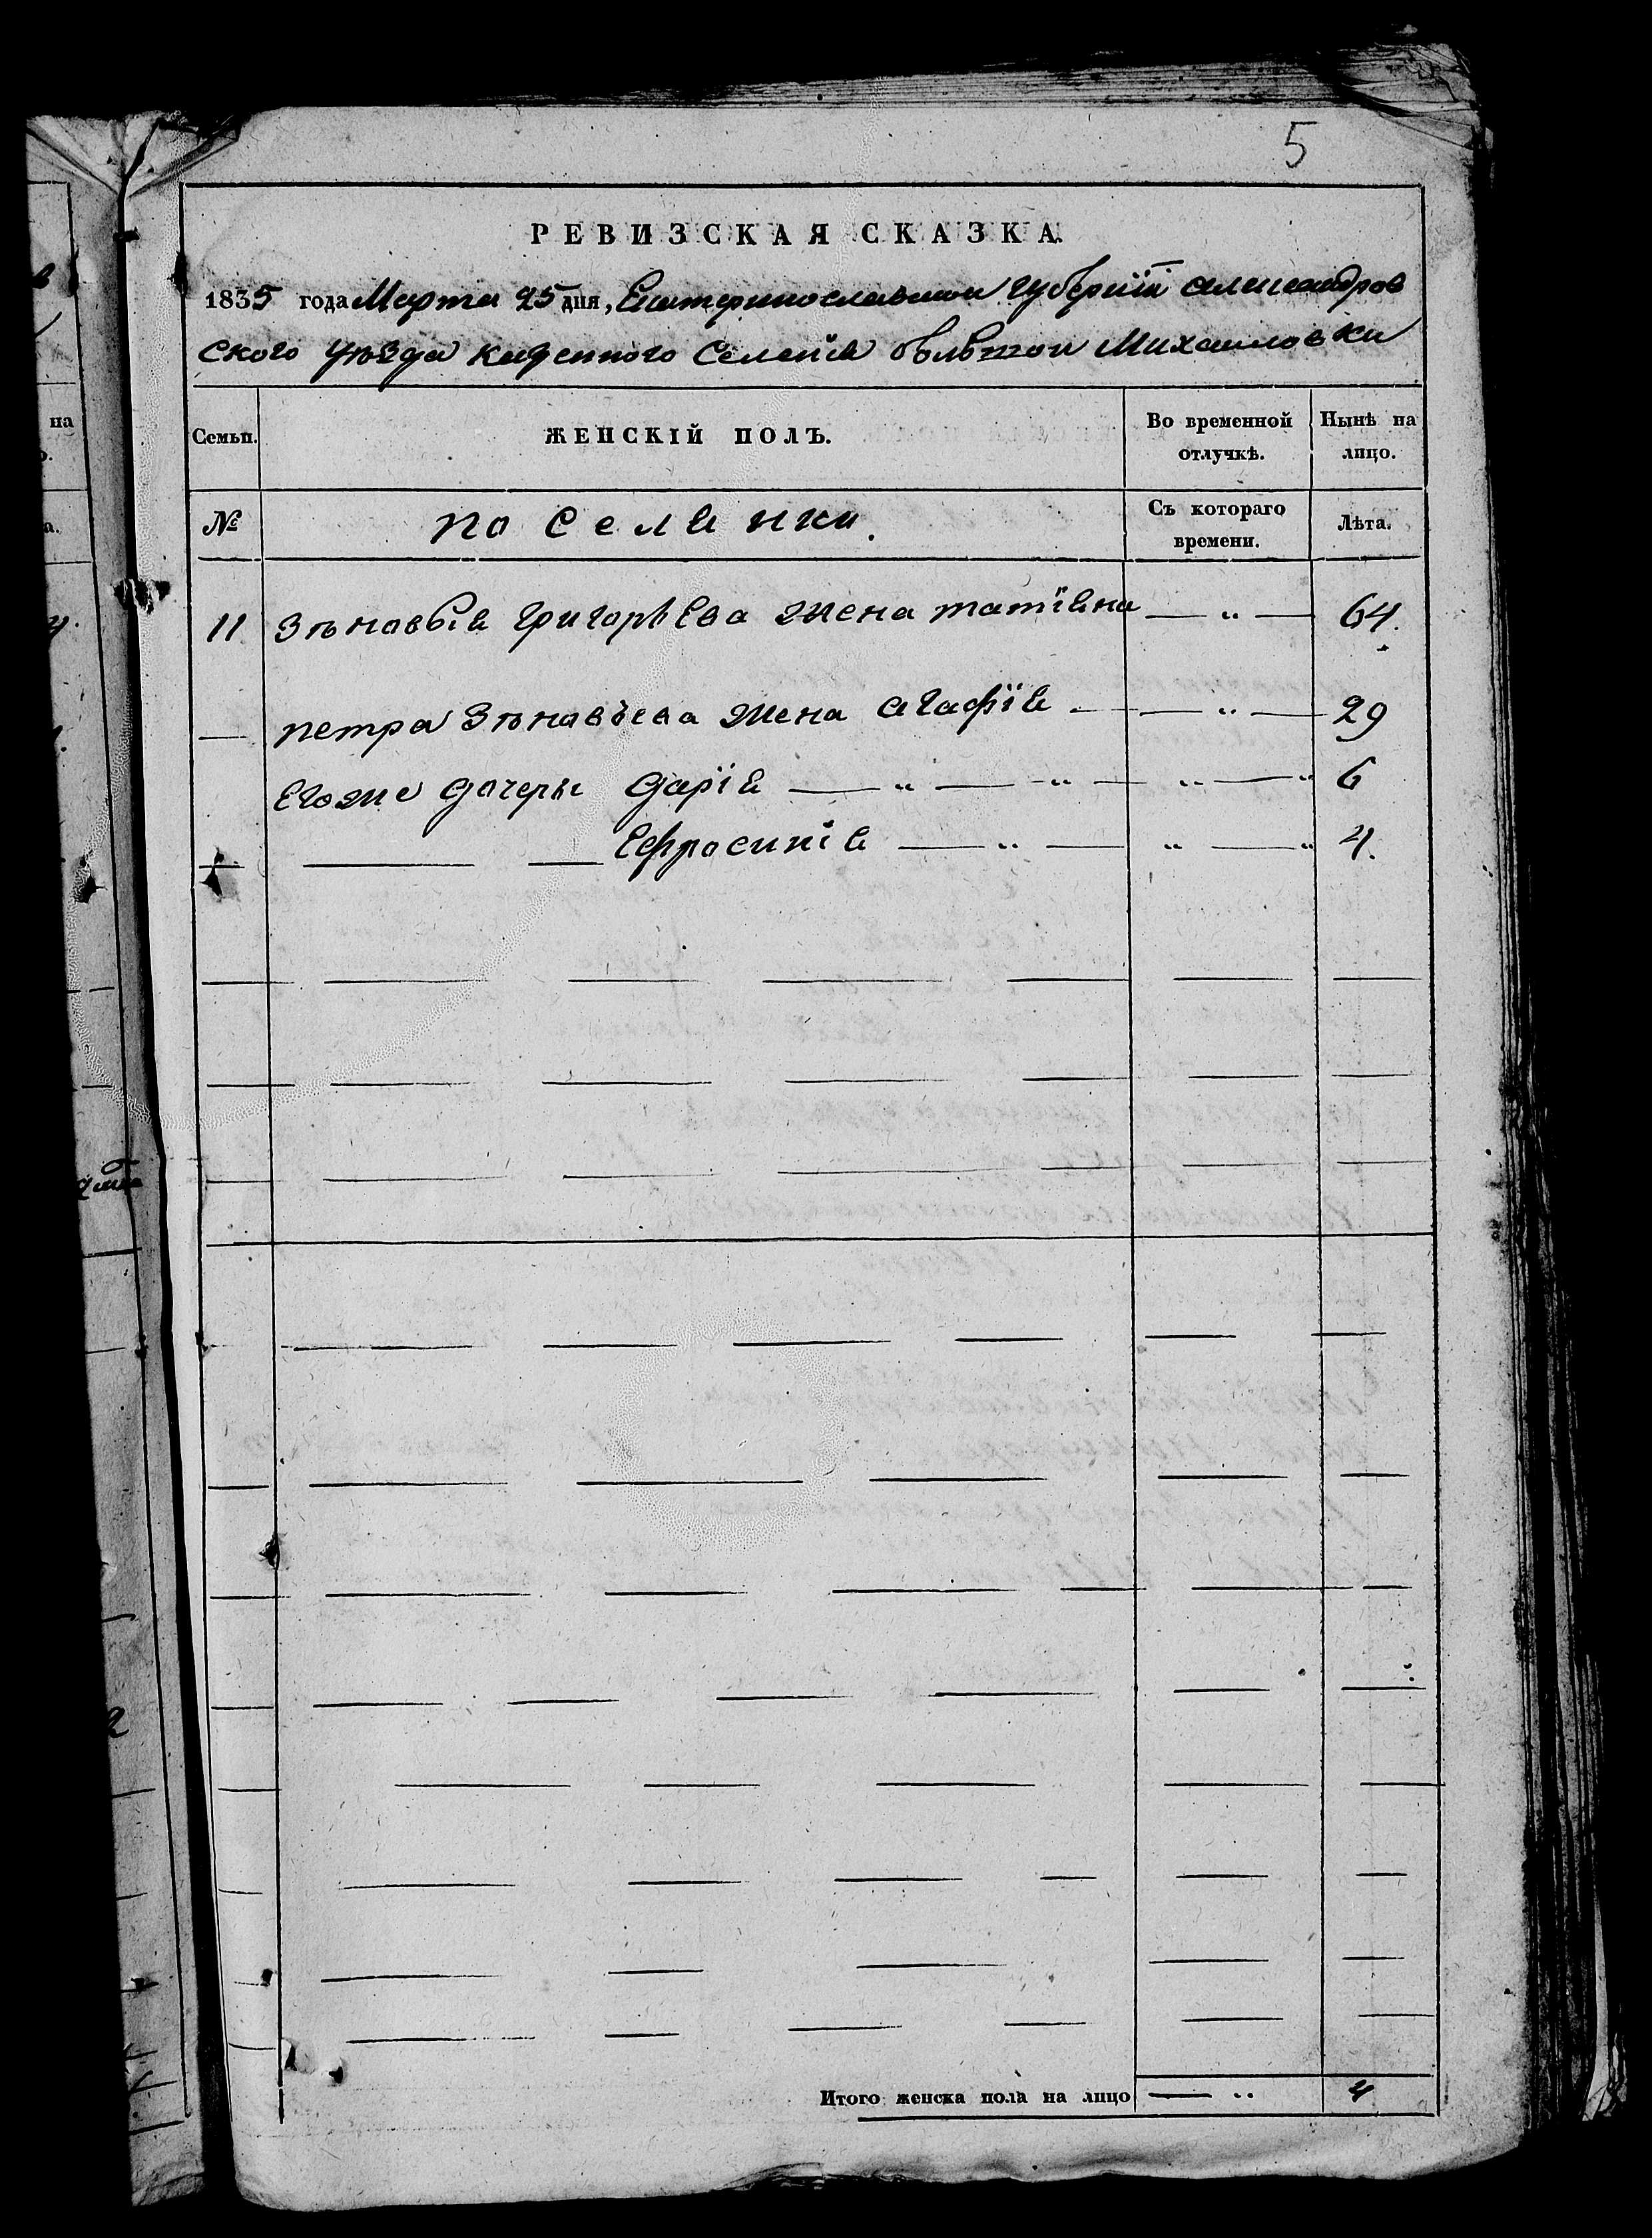 5
РЕВИЗСКАЯ СКАЗКА.
1835 года Марта 25 дня, Екатеринославской губернїи александров
ского уѣзда казенного Селенїя большой Михаиловки
Семьи. ЖЕНСКІЙ ПОЛЪ. Во временной отлучкѣ. Нынѣ на лицо.
№ поселянки. Съ котораго времени. Лѣта.
11 Зѣновьїя григорьева жена татїяна — " — 64.
— петра Зѣновьева жена агафїя — — " — 29
Егоже дочери дарїя — " — " — " — " 6
— — — Ефросинїя — " — " — " 4.
Итого женска пола на лицо — " 4